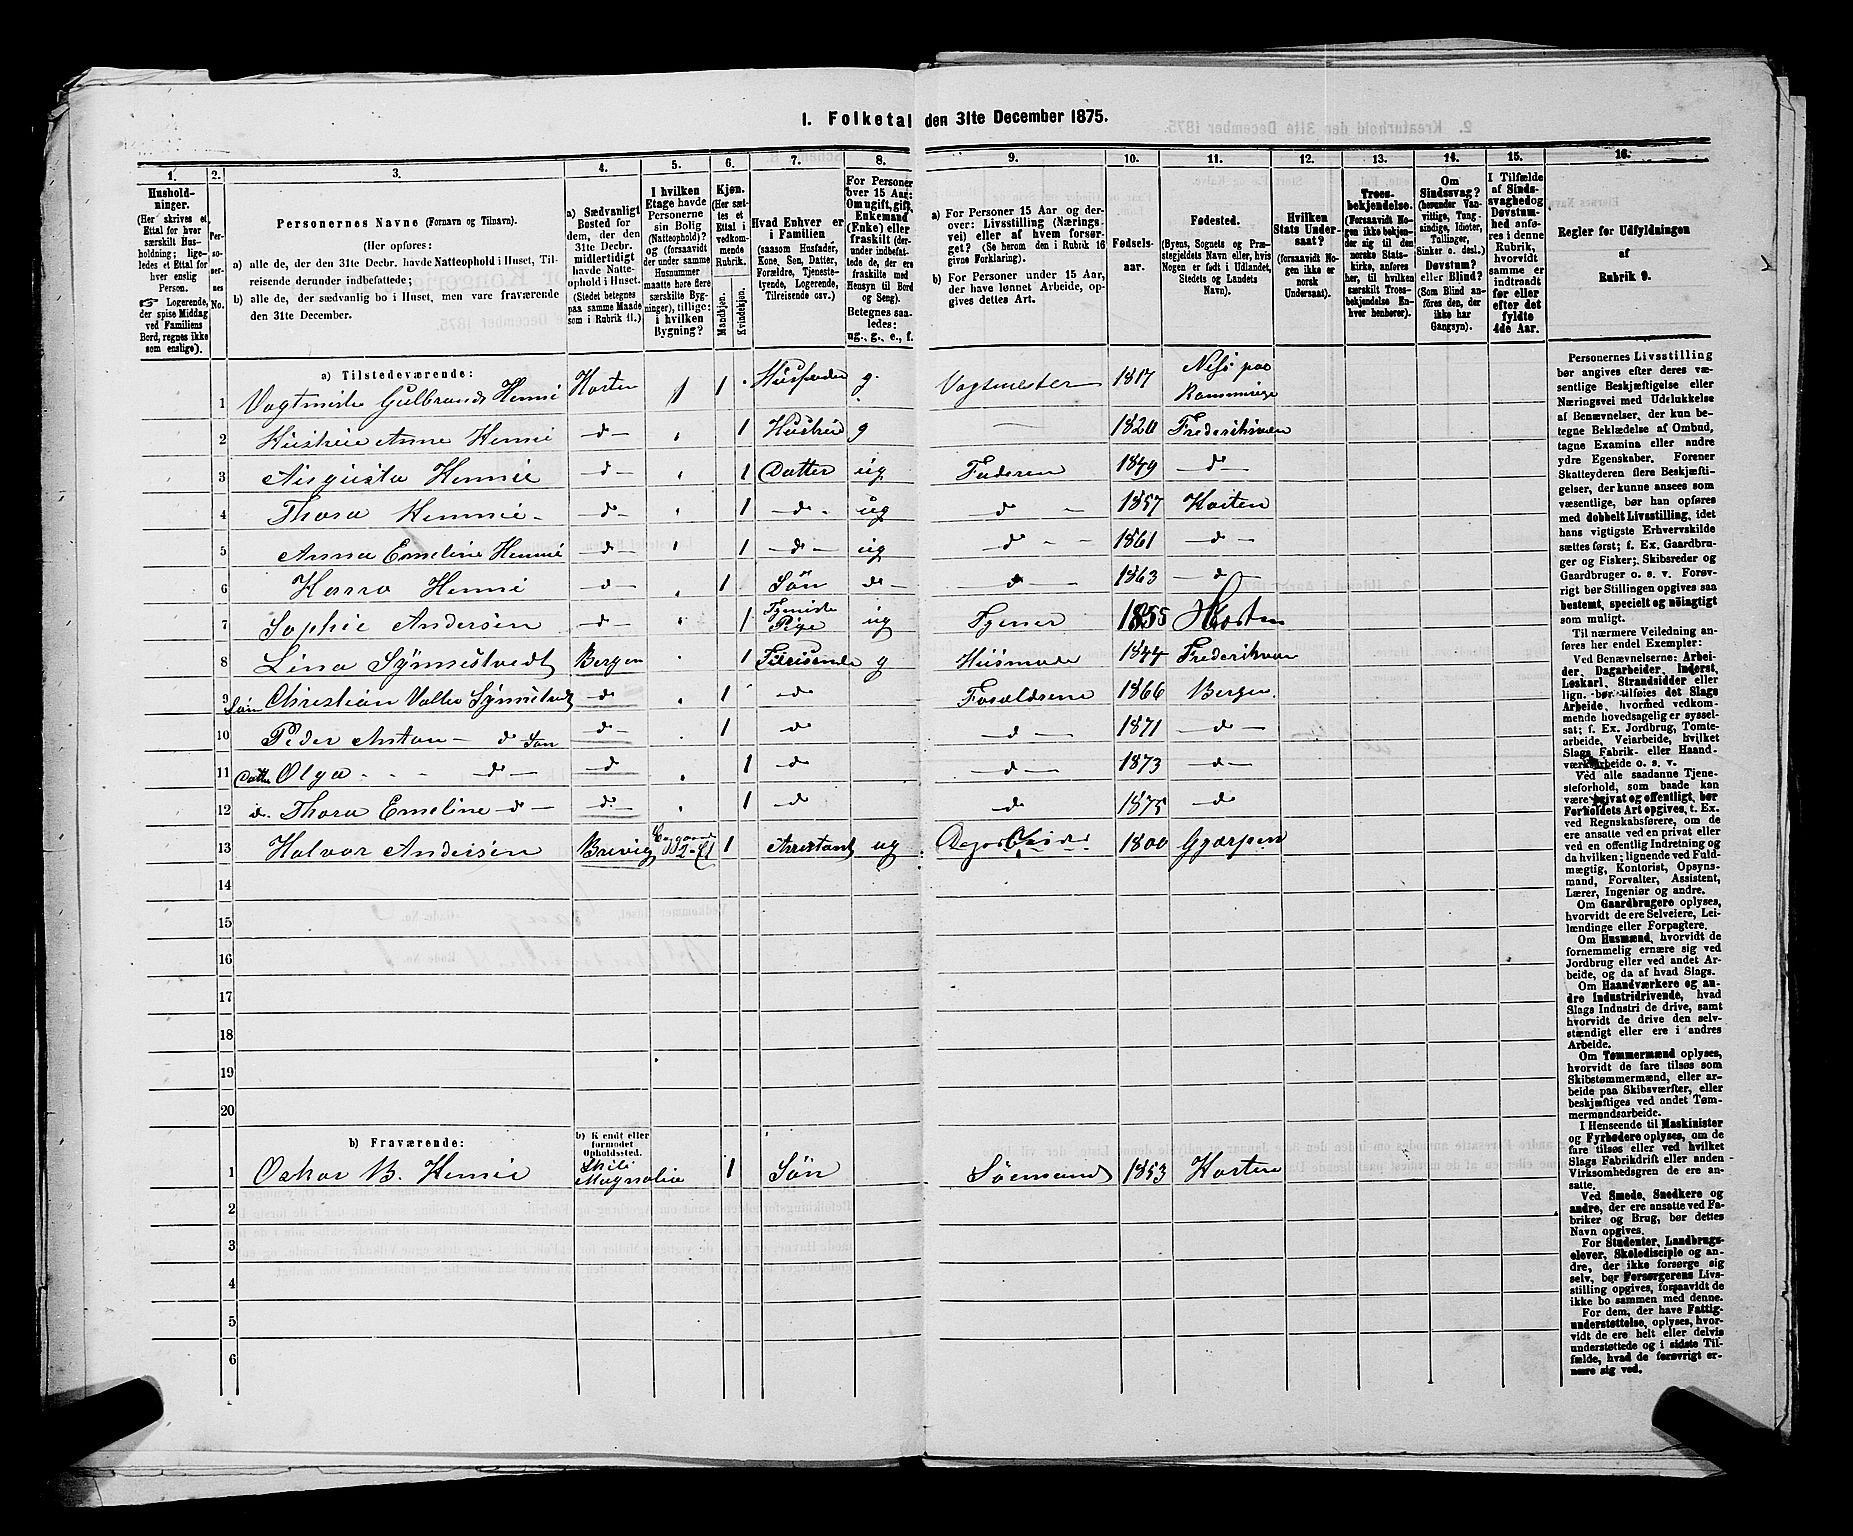 I. Folketal den 31te December 1875.
1. 2. 3. 4. 5. 6. 7. 8. 9. 10. 11. 12. 13. 14. 15. 16.
Husholdninger.
(Her skrives et Ettal for hver særskilt Husholdning; ligeledes et Ettal for hver enslig Person.
☞ Logerende, der spise Middag ved Familiens Bord, regnes ikke som enslige).
Personernes No.
Personernes Navne (Fornavn og Tilnavn).
(Her opføres:
a) alle de, der den 31te Decbr. havde Natteophold i Huset, Tilreisende derunder indbefattede;
b) alle de, der sædvanlig bo i Huset, men vare fraværende den 31te December.
a) Sædvanligt Bosted for dem, der den 31te Decbr. midlertidigt havde Natteophold i Huset.
(Stedet betegnes paa samme Maade som i Rubrik 11.)
I hvilken Etage havde Personerne sin Bolig (Natteophold)? og (forsaavidt der under samme Husnummer maatte høre flere særskilte Bygninger), tillige: i hvilken Bygning?
Kjøn.
(Her sættes et Ettal i vedkommende Rubrik.
Mandkjøn. Kvindekjøn.
Hvad Enhver er i Familien
(saasom Husfader, Kone, Søn, Datter, Forældre, Tjenestetyende, Logerende, Tilreisende osv.)
For Personer over 15 Aar: Om ugift, gift, Enkemand (Enke) eller fraskilt (derunder indbefattede de, der ere fraskilte med Hensyn til Bord og Seng).
Betegnes saaledes: ug., g., e., f.
a) For Personer 15 Aar og derover: Livsstilling (Næringsvei) eller af hvem forsørget? (Se herom den i Rubrik 16 givne Forklaring).
b) For Personer under 15 Aar, der have lønnet Arbeide, opgives dettes Art.
Fødselsaar.
Fødested.
(Byens, Sognets og Præstegjeldets Navn eller, hvis Nogen er født i Udlandet, Stedets og Landets Navn).
Hvilken Stats Undersaat?
(forsaavidt Nogen ikke er norsk Undersaat).
Troesbekjendelse.
(Forsaavidt Nogen ikke bekjender sig til den norske Statskirke, anføres her, til hvilken særskilt Troesbekjendelse Enhver henhører).
Om Sindssvag? (herunder Vanvittige, Tungsindige, Idioter, Tullinger, Sinker o. desl.) Døvstum? eller Blind? (Som Blind anføres den, der ikke har Gangsyn).
I Tilfælde af Sindssvaghed og Døvstumhed anføres i denne Rubrik, hvorvidt samme er indtraadt før eller efter det fyldte 4de Aar.
Regler for Udfyldningen af Rubrik 9.
a) Tilstedeværende:
1 Vagtmester Gulbrands Hennie Horten 1 1 Husfader g. Vagtmester 1817
2 Hustrue Anne Hennie -d- 1 Hustrue g — 1820 Frederiksværn
3 Augusta Hennie -d- 1 Datter ug Faderen 1849 -d-
4 Thora Hennie -d- 1 -d- ug d - 1857 Horten
5 Anna Emeline Hennie -d- 1 -d- ug d - - 1861 -d-
6 Hennie -d- 1 Søn d- d 1863 -d
7 Sophie Andersen -d- 1 Tjeneste Pige ug Tjener 1855 Horten
8 Lina Synnestvedt Bergen 1 Tilreisende g Husmoder 1844 Frederiksværn
9 Søn Christian Valter Synnestvedt d 1 d Forældrene 1866 Bergen
10 Peder Anton - d Søn d 1 d d 1871 -d-
11 Datter Olga - - - d - d 1 d d 1873 -d-
12 d. Thora Emeline d - d 1 d d 1875 d
13 Halvor Andersen Brevig 1 Arrestant ug 1800 Gjerpen
14
15
16
17
18
19
20
b) Fraværende:
b) Kjendt eller formodet Opholdssted.
1 Oskar B. Hennie Skib Magnolia 1 Søn Sømand 1853 Horten
2
3
4
5
6
Personernes Livsstilling bør angives efter deres væsentlige Beskjæftigelse eller Næringsvei med Udelukkelse af Benævnelser, der kun betegne Beklædelse af Ombud, tagne Examina eller andre ydre Egenskaber. Forener Skatteyderen flere Beskjæftigelser, der kunne ansees som væsentlige, bør han opføres med dobbelt Livsstilling, idet hans vigtigste Erhvervskilde sættes først; f. Ex. Gaardbruger og Fisker; Skibsreder og Gaardbruger o. s. v. Forøvrigt bør Stillingen opgives saa bestemt, specielt og nøiagtigt som muligt.
Til nærmere Veiledning anføres her endel Exempler:
Ved Benævnelserne: Arbeider, Dagarbeider, Inderst, Løskarl, Strandsidder eller lign. bør tilføies det Slags Arbeide, hvormed vedkommende hovedsagelig er sysselsat; f. Ex. Jordbrug, Tomtearbeide, Veiarbeide, hvilket Slags Fabrik- eller Haandværksarbeide o. s. v.
Ved alle saadanne Tjenesteforhold, som baade kan være privat og offentligt, bør Forholdets Art opgives, t. Ex. ved Regnskabsførere, om de ere ansatte ved en privat eller ved en offentlig Indretning og da hvilken; lignende ved Fuldmægtig, Kontorist, Opsynsmand, Forvalter, Assistent, Lærer, Ingeniør og andre.
Om Gaardbrugere oplyses, hvorvidt de ere Selveiere, Leilændinge eller Forpagtere.
Om Husmænd, hvorvidt de fornemmelig ernære sig ved Jordbrug eller ved andet Arbeide, og da af hvad Slags.
Om Haandværkere og andre Industridrivende, hvad Slags Industri de drive, samt hvorvidt de drive den selvstændigt eller ere i andres Arbeide.
Om Tømmermænd oplyses, hvorvidt de fare tilsøs som Skibstømmermænd, eller arbeide paa Skibsværfter, eller beskjæftiges ved andet Tømmermandsarbeide.
I Henseende til Maskinister og Fyrbødere oplyses, om de fare tilsøs eller ved hvilket Slags Fabrikdrift eller anden Virksomhedsgren de ere ansatte.
Ved Smede, Snedkere og andre, der ere ansatte ved Fabriker og Brug, bør dettes Navn opgives.
For Studenter, Landbrugselever, Skoledisciple og andre, der ikke forsørge sig selv, bør Forsørgerens Livsstilling opgives, forsaavidt de ikke bo sammen med denne.
For dem, der have Fattigunderstøttelse, oplyses, hvorvidt de ere helt eller delvis understøttede og i sidste Tilfælde, hvad de forøvrigt ernære sig ved.